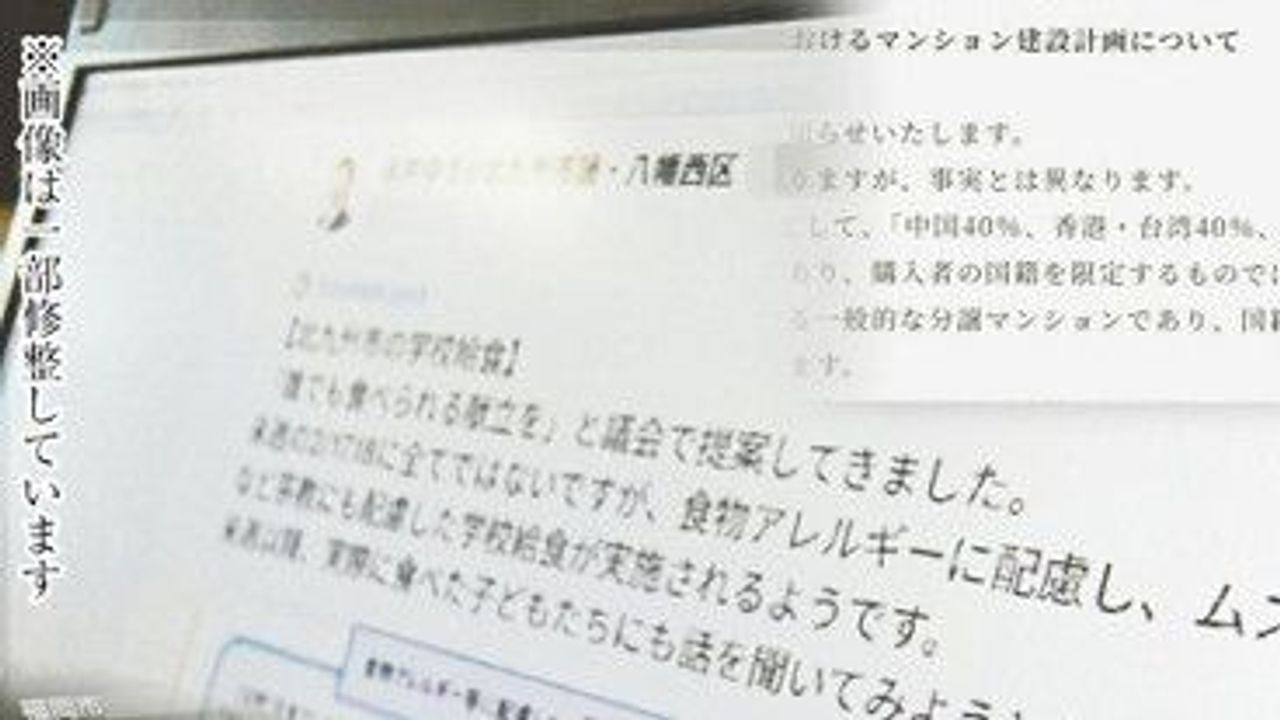 ※画像は一部修整しています
おけるマンション建設計画について
らせいたします。
りますが、事実とは異なります。
して、「中国40%、香港・台湾40%、
あり、購入者の国籍を限定するものでは
一般的な分譲マンションであり、国籍
ます。
・八幡西区
【北九州市の学校給食】
「誰でも食べられる献立を」と議会で提案してきました。
に全てではないですが、食物アレルギーに配慮し、ムス
など宗教にも配慮した学校給食が実施されるようです。
来週以降、実際に食べた子どもたちにも話を聞いてみよう